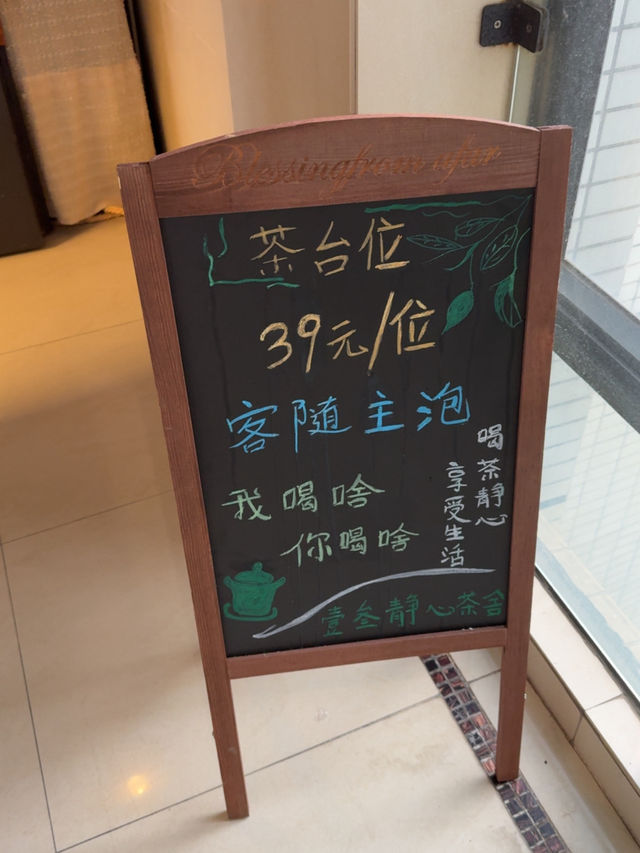 Blessing from afar
茶台位
39元/位
客随主泡
我喝啥
你喝啥
喝茶静心
享受生活
壹叁静心茶舍